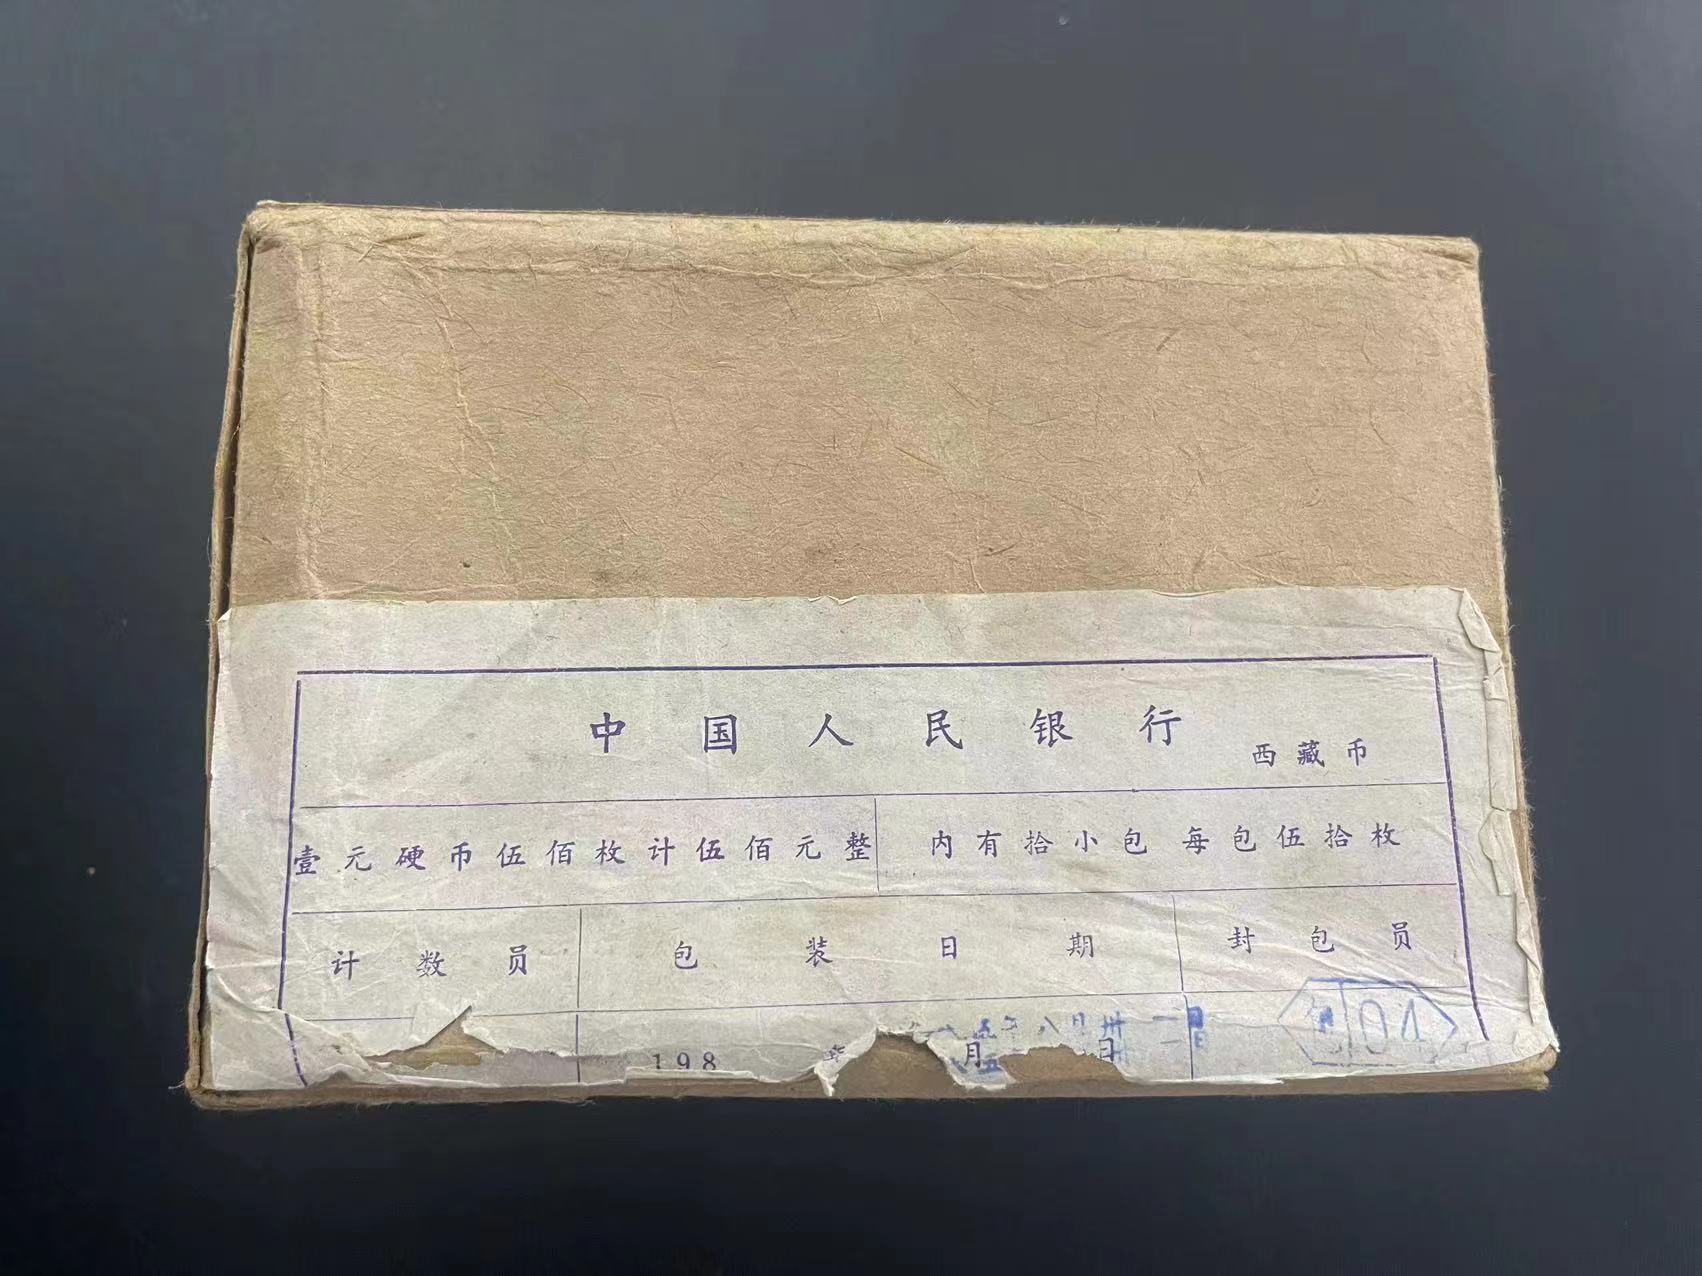 中国人民银行
西藏币
壹元硬币伍佰枚计伍佰元整 内有拾小包每包伍拾枚
计数员 包装日期 封包员
198 年 月 日
八五年八月卅一日
包 04